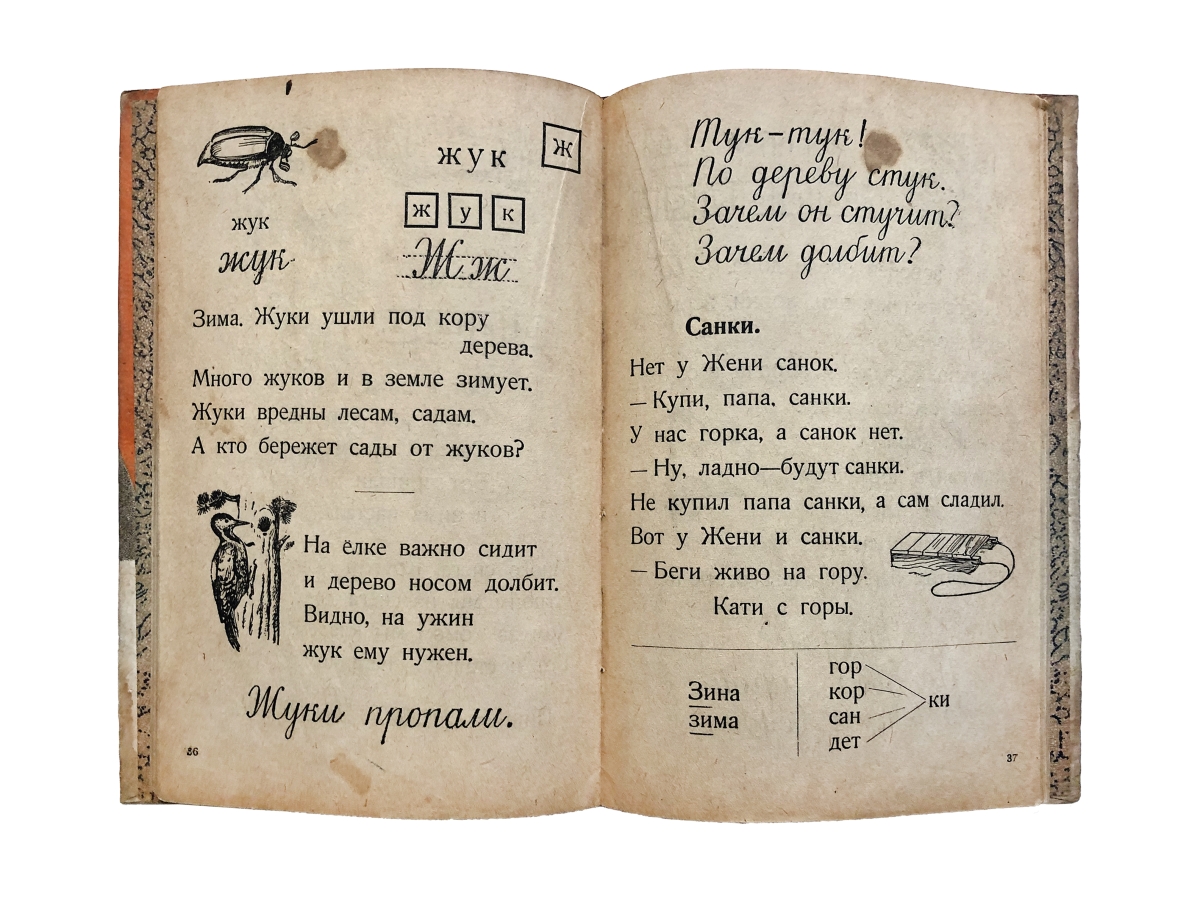 жук
ж
ж у к
жук
жук
Ж ж
Зима. Жуки ушли под кору
дерева.
Много жуков и в земле зимует.
Жуки вредны лесам, садам.
А кто бережет сады от жуков?
На ёлке важно сидит
и дерево носом долбит.
Видно, на ужин
жук ему нужен.
Жуки пропали.
36
Тук-тук!
По дереву стук.
Зачем он стучит?
Зачем долбит?
Санки.
Нет у Жени санок.
— Купи, папа, санки.
У нас горка, а санок нет.
— Ну, ладно—будут санки.
Не купил папа санки, а сам сладил.
Вот у Жени и санки.
— Беги живо на гору.
Кати с горы.
Зина
зима
гор
кор
сан
дет
ки
37